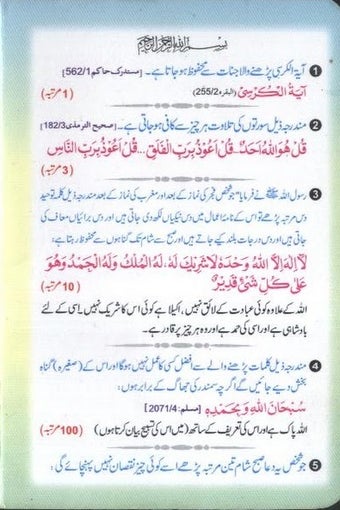 بسم الله الرحمن الرحيم
1 آیۃ الکرسی پڑھنے والا جنات سے محفوظ ہو جاتا ہے۔ [مستدرک حاکم 562/1]
آيَةُ الْكُرْسِىْ (البقرہ 255/2) (1 مرتبہ)
2 مندرجہ ذیل سورتوں کی تلاوت ہر چیز سے کافی ہو جاتی ہے۔ [صحیح الترمذی 182/3]
قُلْ هُوَ اللهُ اَحَدٌ... قُلْ اَعُوْذُ بِرَبِّ الْفَلَقِ... قُلْ اَعُوْذُ بِرَبِّ النَّاسِ
(3 مرتبہ)
3 رسول اللہ ﷺ نے فرمایا "جو شخص فجر کی نماز کے بعد اور مغرب کی نماز کے بعد مندرجہ ذیل کلمہ توحید
دس مرتبہ پڑھے تو اس کے نامۂ اعمال میں دس نیکیاں لکھ دی جاتی ہیں اور دس برائیاں معاف کی
جاتی ہیں اور دس درجات بلند کیے جاتے ہیں اور صبح سے شام تک گناہوں سے محفوظ رہتا ہے:
لَآ اِلٰهَ اِلَّا اللهُ وَحْدَهُ لَا شَرِيْكَ لَهُ، لَهُ الْمُلْكُ وَلَهُ الْحَمْدُ وَهُوَ
عَلٰى كُلِّ شَىْءٍ قَدِيْرٌ (10 مرتبہ)
اللہ کے علاوہ کوئی عبادت کے لائق نہیں، اکیلا ہے کوئی اس کا شریک نہیں۔ اسی کے لئے
بادشاہی ہے اور اسی کی حمد ہے اور وہ ہر چیز پر قادر ہے۔
4 مندرجہ ذیل کلمات پڑھنے والے سے افضل کسی کا عمل نہیں ہوگا اور اس کے (صغیرہ) گناہ
بخش دیے جائیں گے اگرچہ سمندر کی جھاگ کے برابر ہوں:
سُبْحَانَ اللهِ وَبِحَمْدِهٖ [مسلم: 2071/4]
اللہ پاک ہے اور اسی کی تعریف کے ساتھ (میں اس کی تسبیح بیان کرتا ہوں) (100 مرتبہ)
5 جو شخص یہ دعا صبح شام تین مرتبہ پڑھے اسے کوئی چیز نقصان نہیں پہنچائے گی: